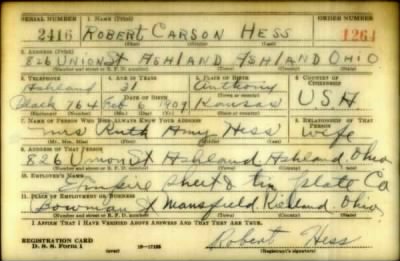 SERIAL NUMBER 1. NAME (Print) ORDER NUMBER
2416 ROBERT CARSON HESS 1261
(First) (Middle) (Last)
2. ADDRESS (Print)
826 UNION St ASHLAND ASHLAND OHIO
(Number and street or R. F. D. number) (Town) (County) (State)
3. TELEPHONE 4. AGE IN YEARS 5. PLACE OF BIRTH 6. COUNTRY OF CITIZENSHIP
Ashland 31 Anthony
DATE OF BIRTH (Town or county) U.S.A.
Black 764 Feb 6 1909 Kansas
(Exchange) (Number) (Mo.) (Day) (Yr.) (State or country)
7. NAME OF PERSON WHO WILL ALWAYS KNOW YOUR ADDRESS 8. RELATIONSHIP OF THAT PERSON
Mrs Ruth Amy Hess Wife
(Mr., Mrs., Miss) (First) (Middle) (Last)
9. ADDRESS OF THAT PERSON
826 Union St Ashland Ashland Ohio
(Number and street or R. F. D. number) (Town) (County) (State)
10. EMPLOYER'S NAME
Empire Sheet & Tin Plate Co
11. PLACE OF EMPLOYMENT OR BUSINESS
Bowman St Mansfield Richland Ohio
(Number and street or R. F. D. number) (Town) (County) (State)
I AFFIRM THAT I HAVE VERIFIED ABOVE ANSWERS AND THAT THEY ARE TRUE.
REGISTRATION CARD
D. S. S. Form 1 (over) Robert Hess
(Registrant's signature)